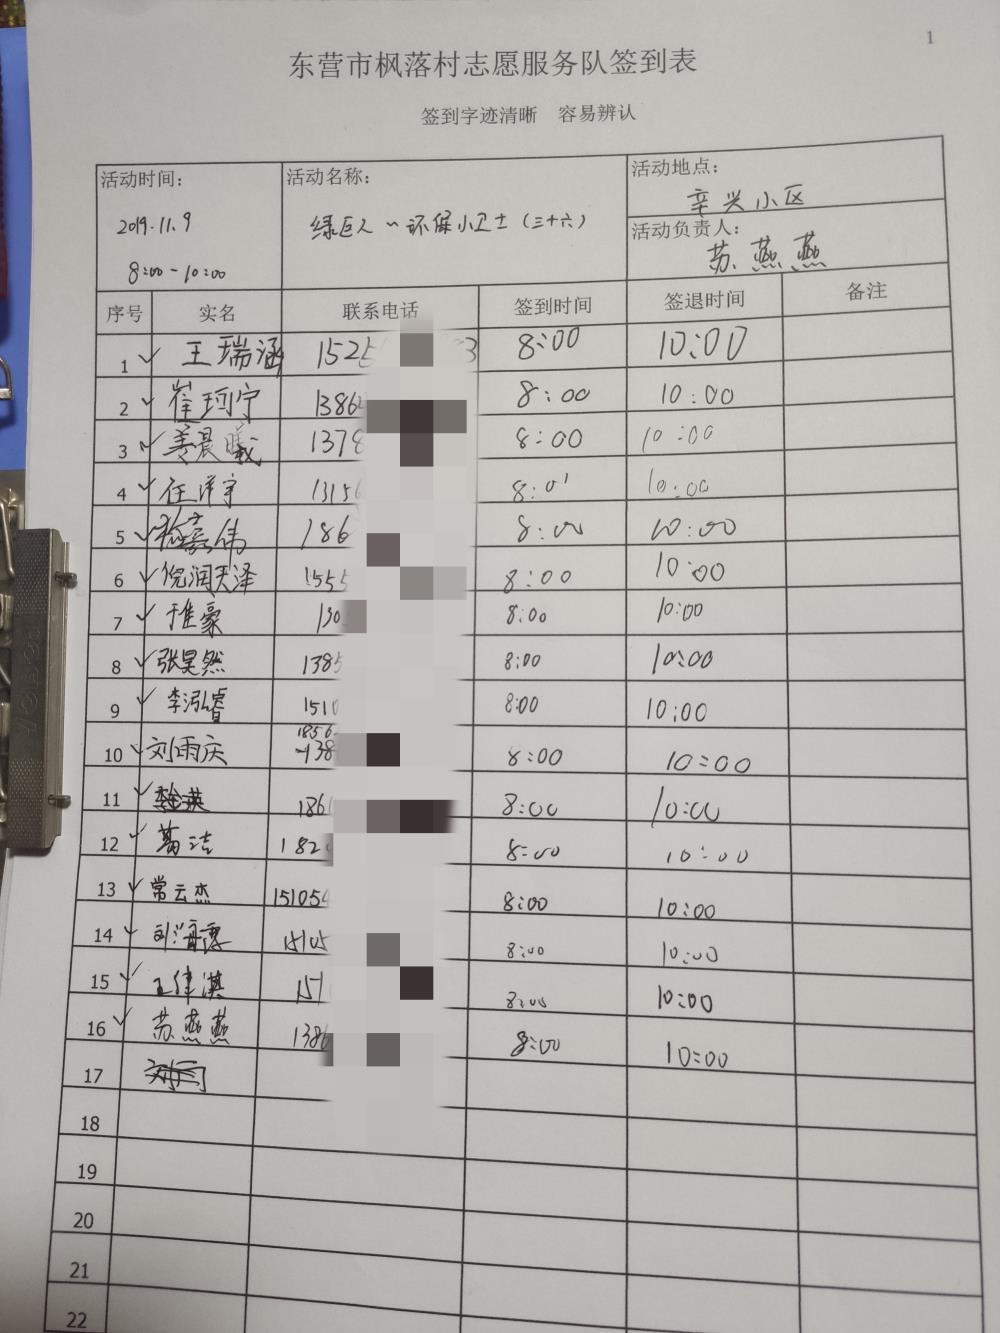 1
东营市枫落村志愿服务队签到表
签到字迹清晰 容易辨认
活动时间： 活动名称： 活动地点：
2019.11.9 绿巨人~环保小卫士（三十六） 辛兴小区
8:00-10:00 活动负责人：
苏燕燕
序号 实名 联系电话 签到时间 签退时间 备注
1 ✓ 王瑞涵 1525 3 8:00 10:00
2 ✓ 崔珂宁 1386 8:00 10:00
3 ✓ 姜晨曦 1378 8:00 10:00
4 ✓ 任泽宇 1315 8:01 10:00
5 ✓ 嘉伟 186 8:00 10:00
6 ✓ 倪润天泽 1555 8:00 10:00
7 ✓ 于惟豪 130 8:00 10:00
8 ✓ 张昊然 1385 8:00 10:00
9 ✓ 李泓睿 1510 8:00 10:00
10 ✓ 刘雨庆 1856 138 8:00 10:00
11 ✓ 186 8:00 10:00
12 ✓ 葛洁 182 8:00 10:00
13 ✓ 常云杰 15105 8:00 10:00
14 ✓ 刘 1510 8:00 10:00
15 ✓ 王 淇 151 8:00 10:00
16 ✓ 苏燕燕 1386 8:00 10:00
17
18
19
20
21
22